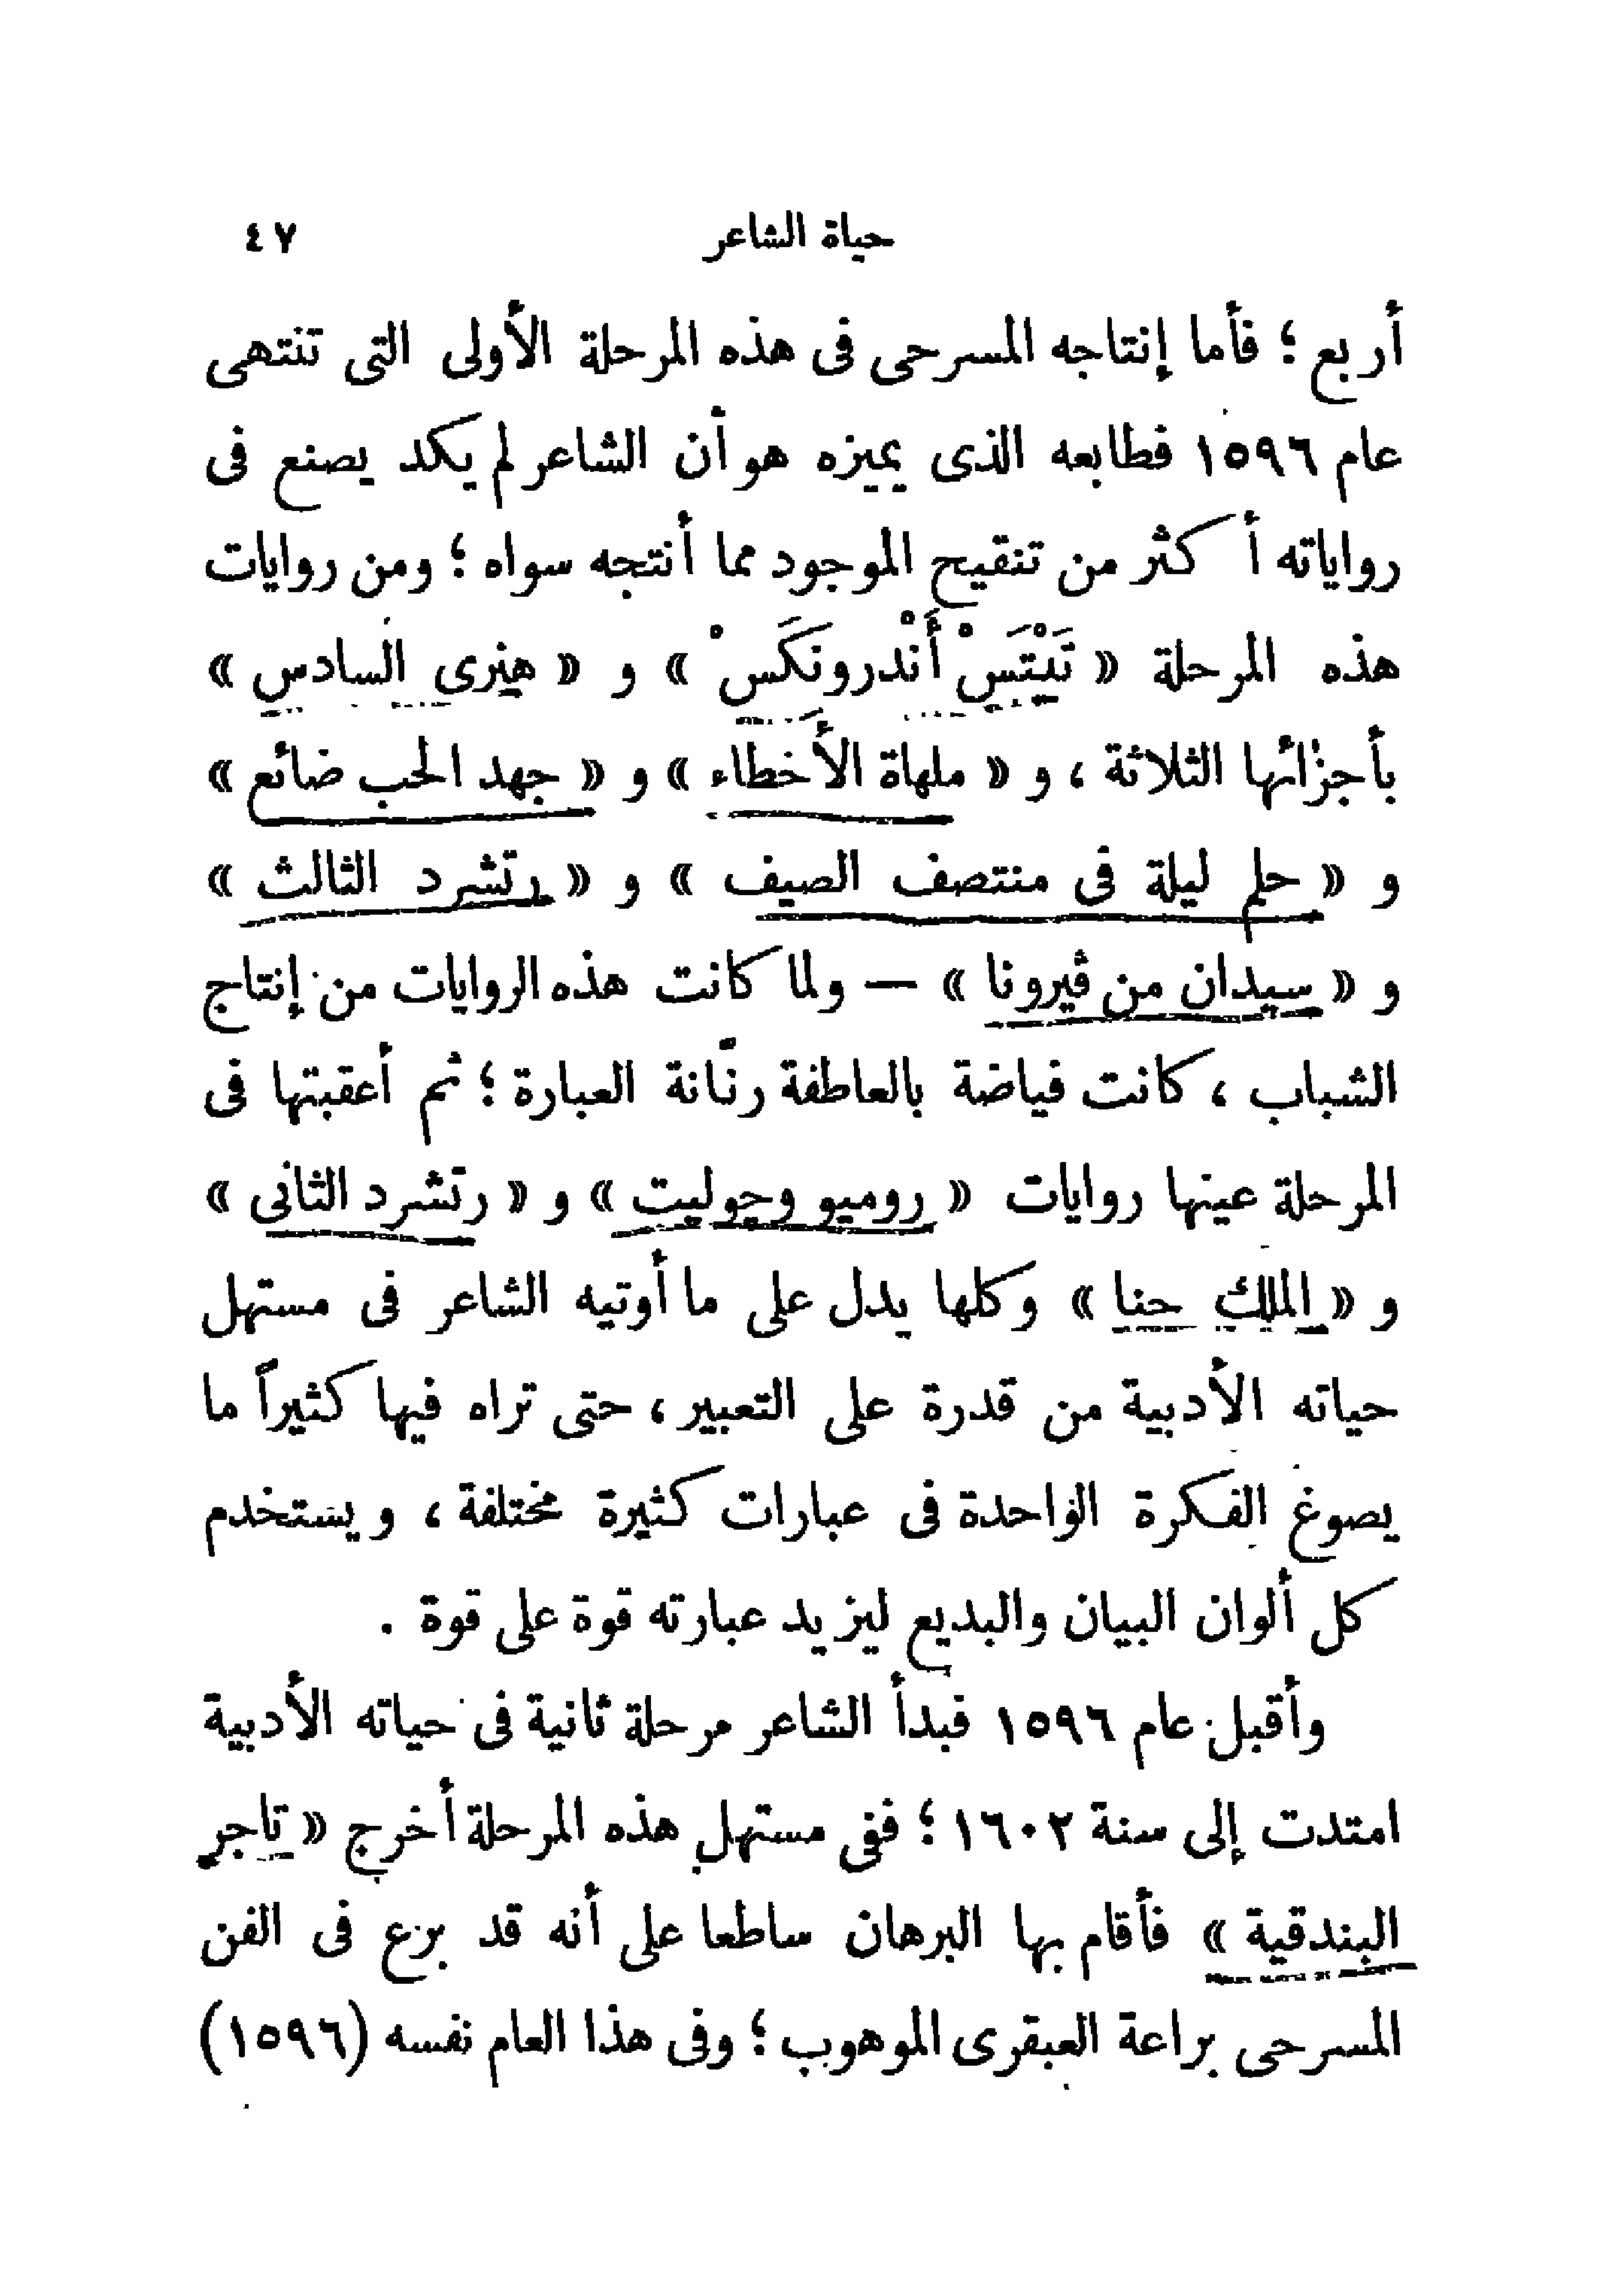 حياة الشاعر ٤٧
أربع ؛ فأما إنتاجه المسرحى فى هذه المرحلة الأولى التى تنتهى
عام ١٥٩٦ فطابعه الذى يميزه هو أن الشاعر لم يكد يصنع فى
رواياته أكثر من تنقيح الموجود مما أنتجه سواه ؛ ومن روايات
هذه المرحلة « تَيْتَسْ أَنْدرونَكَسْ » و « هنرى السادس »
بأجزائها الثلاثة ، و « ملهاة الأخطاء » و « جهد الحب ضائع »
و « حلم ليلة فى منتصف الصيف » و « رتشرد الثالث »
و « سيدان من ڤيرونا » — ولما كانت هذه الروايات من إنتاج
الشباب ، كانت فياضة بالعاطفة رنّانة العبارة ؛ ثم أعقبتها فى
المرحلة عينها روايات « روميو وجوليت » و « رتشرد الثانى »
و « الملك حنا » وكلها يدل على ما أوتيه الشاعر فى مستهل
حياته الأدبية من قدرة على التعبير ، حتى تراه فيها كثيراً ما
يصوغ الفكرة الواحدة فى عبارات كثيرة مختلفة ، ويستخدم
كل ألوان البيان والبديع ليزيد عبارته قوة على قوة .
وأقبل عام ١٥٩٦ فبدأ الشاعر مرحلة ثانية فى حياته الأدبية
امتدت إلى سنة ١٦٠٢ ؛ ففى مستهل هذه المرحلة أخرج « تاجر
البندقية » فأقام بها البرهان ساطعا على أنه قد برع فى الفن
المسرحى براعة العبقرى الموهوب ؛ وفى هذا العام نفسه (١٥٩٦)